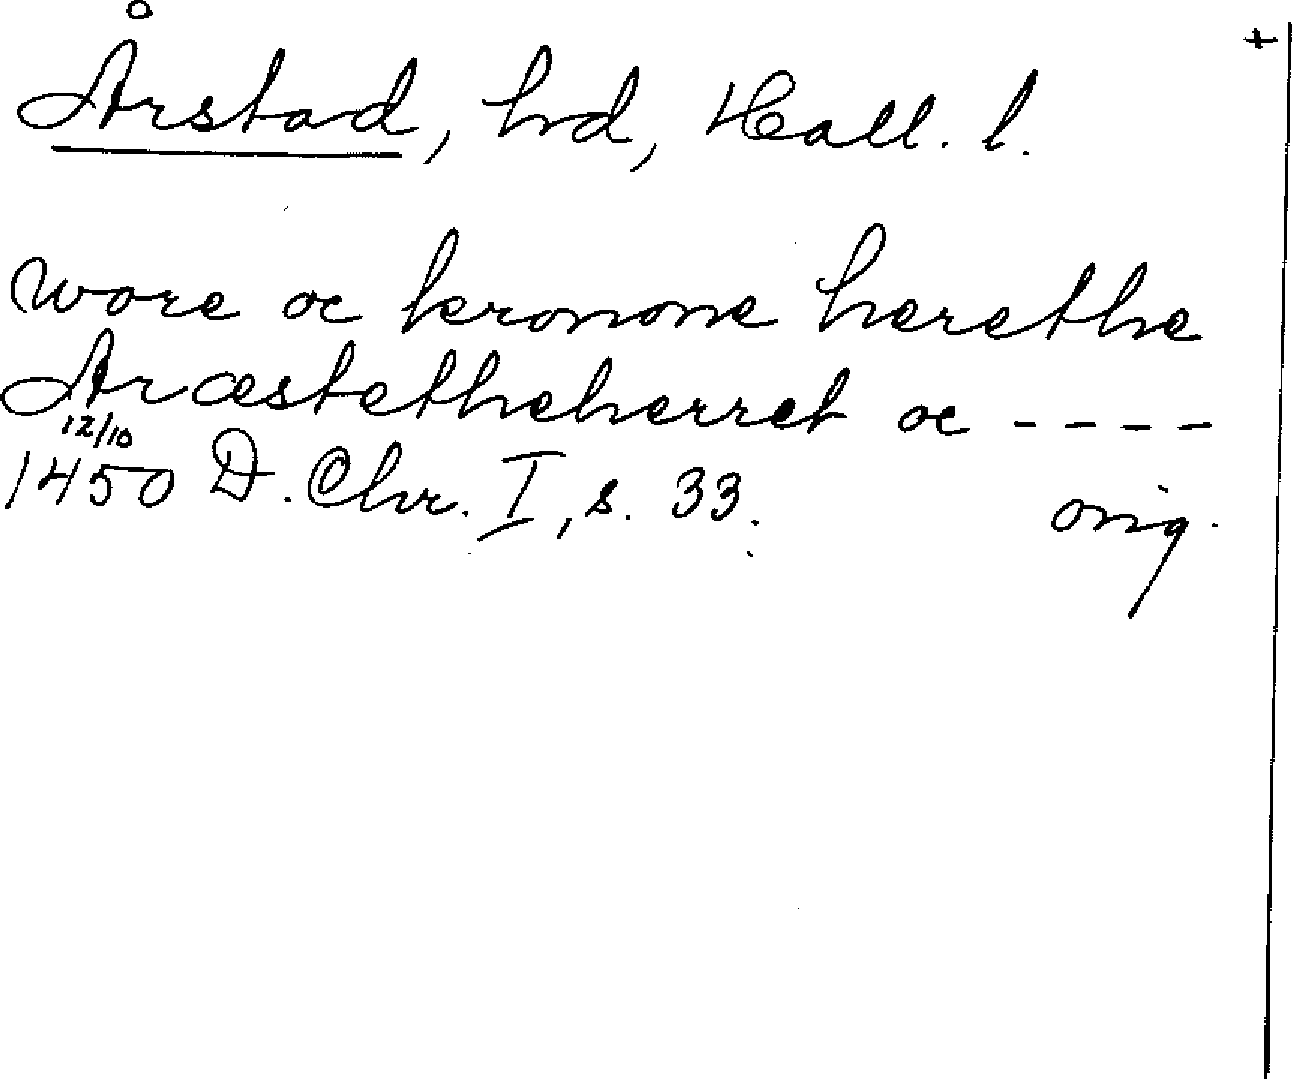 +
Årstad, hd, Hall. l.
wore oc kronone herethe
Aræstetheherret oc - - - -
12/10
1450 D. Chr. I, s. 33. orig.